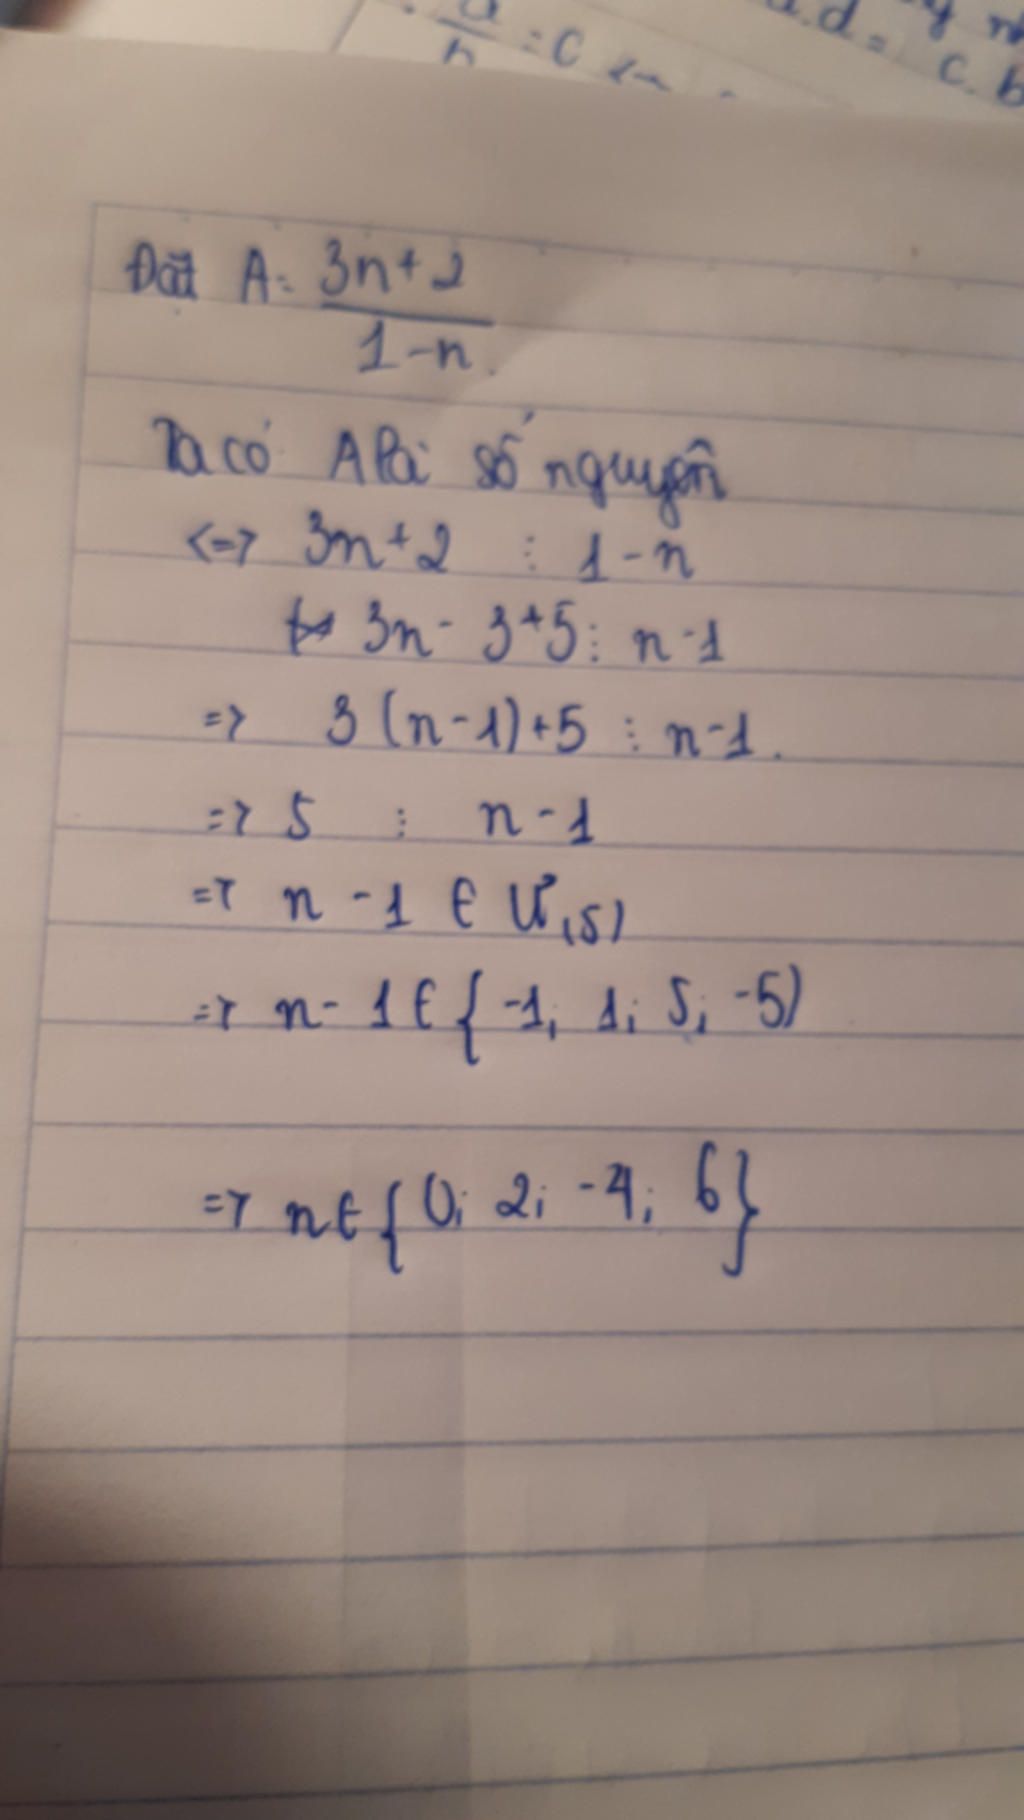 a/b = c <=
a.d = c.b
Đặt A = 3n+2 / 1-n.
Ta có A là số nguyên
<=> 3n+2 ⋮ 1-n
3n - 3+5 ⋮ n-1
=> 3 (n-1)+5 ⋮ n-1.
=> 5 ⋮ n-1
=> n -1 ∈ Ư(5)
=> n- 1 ∈ { -1; 1; 5; -5)
=> n ∈ {0; 2; -4; 6}